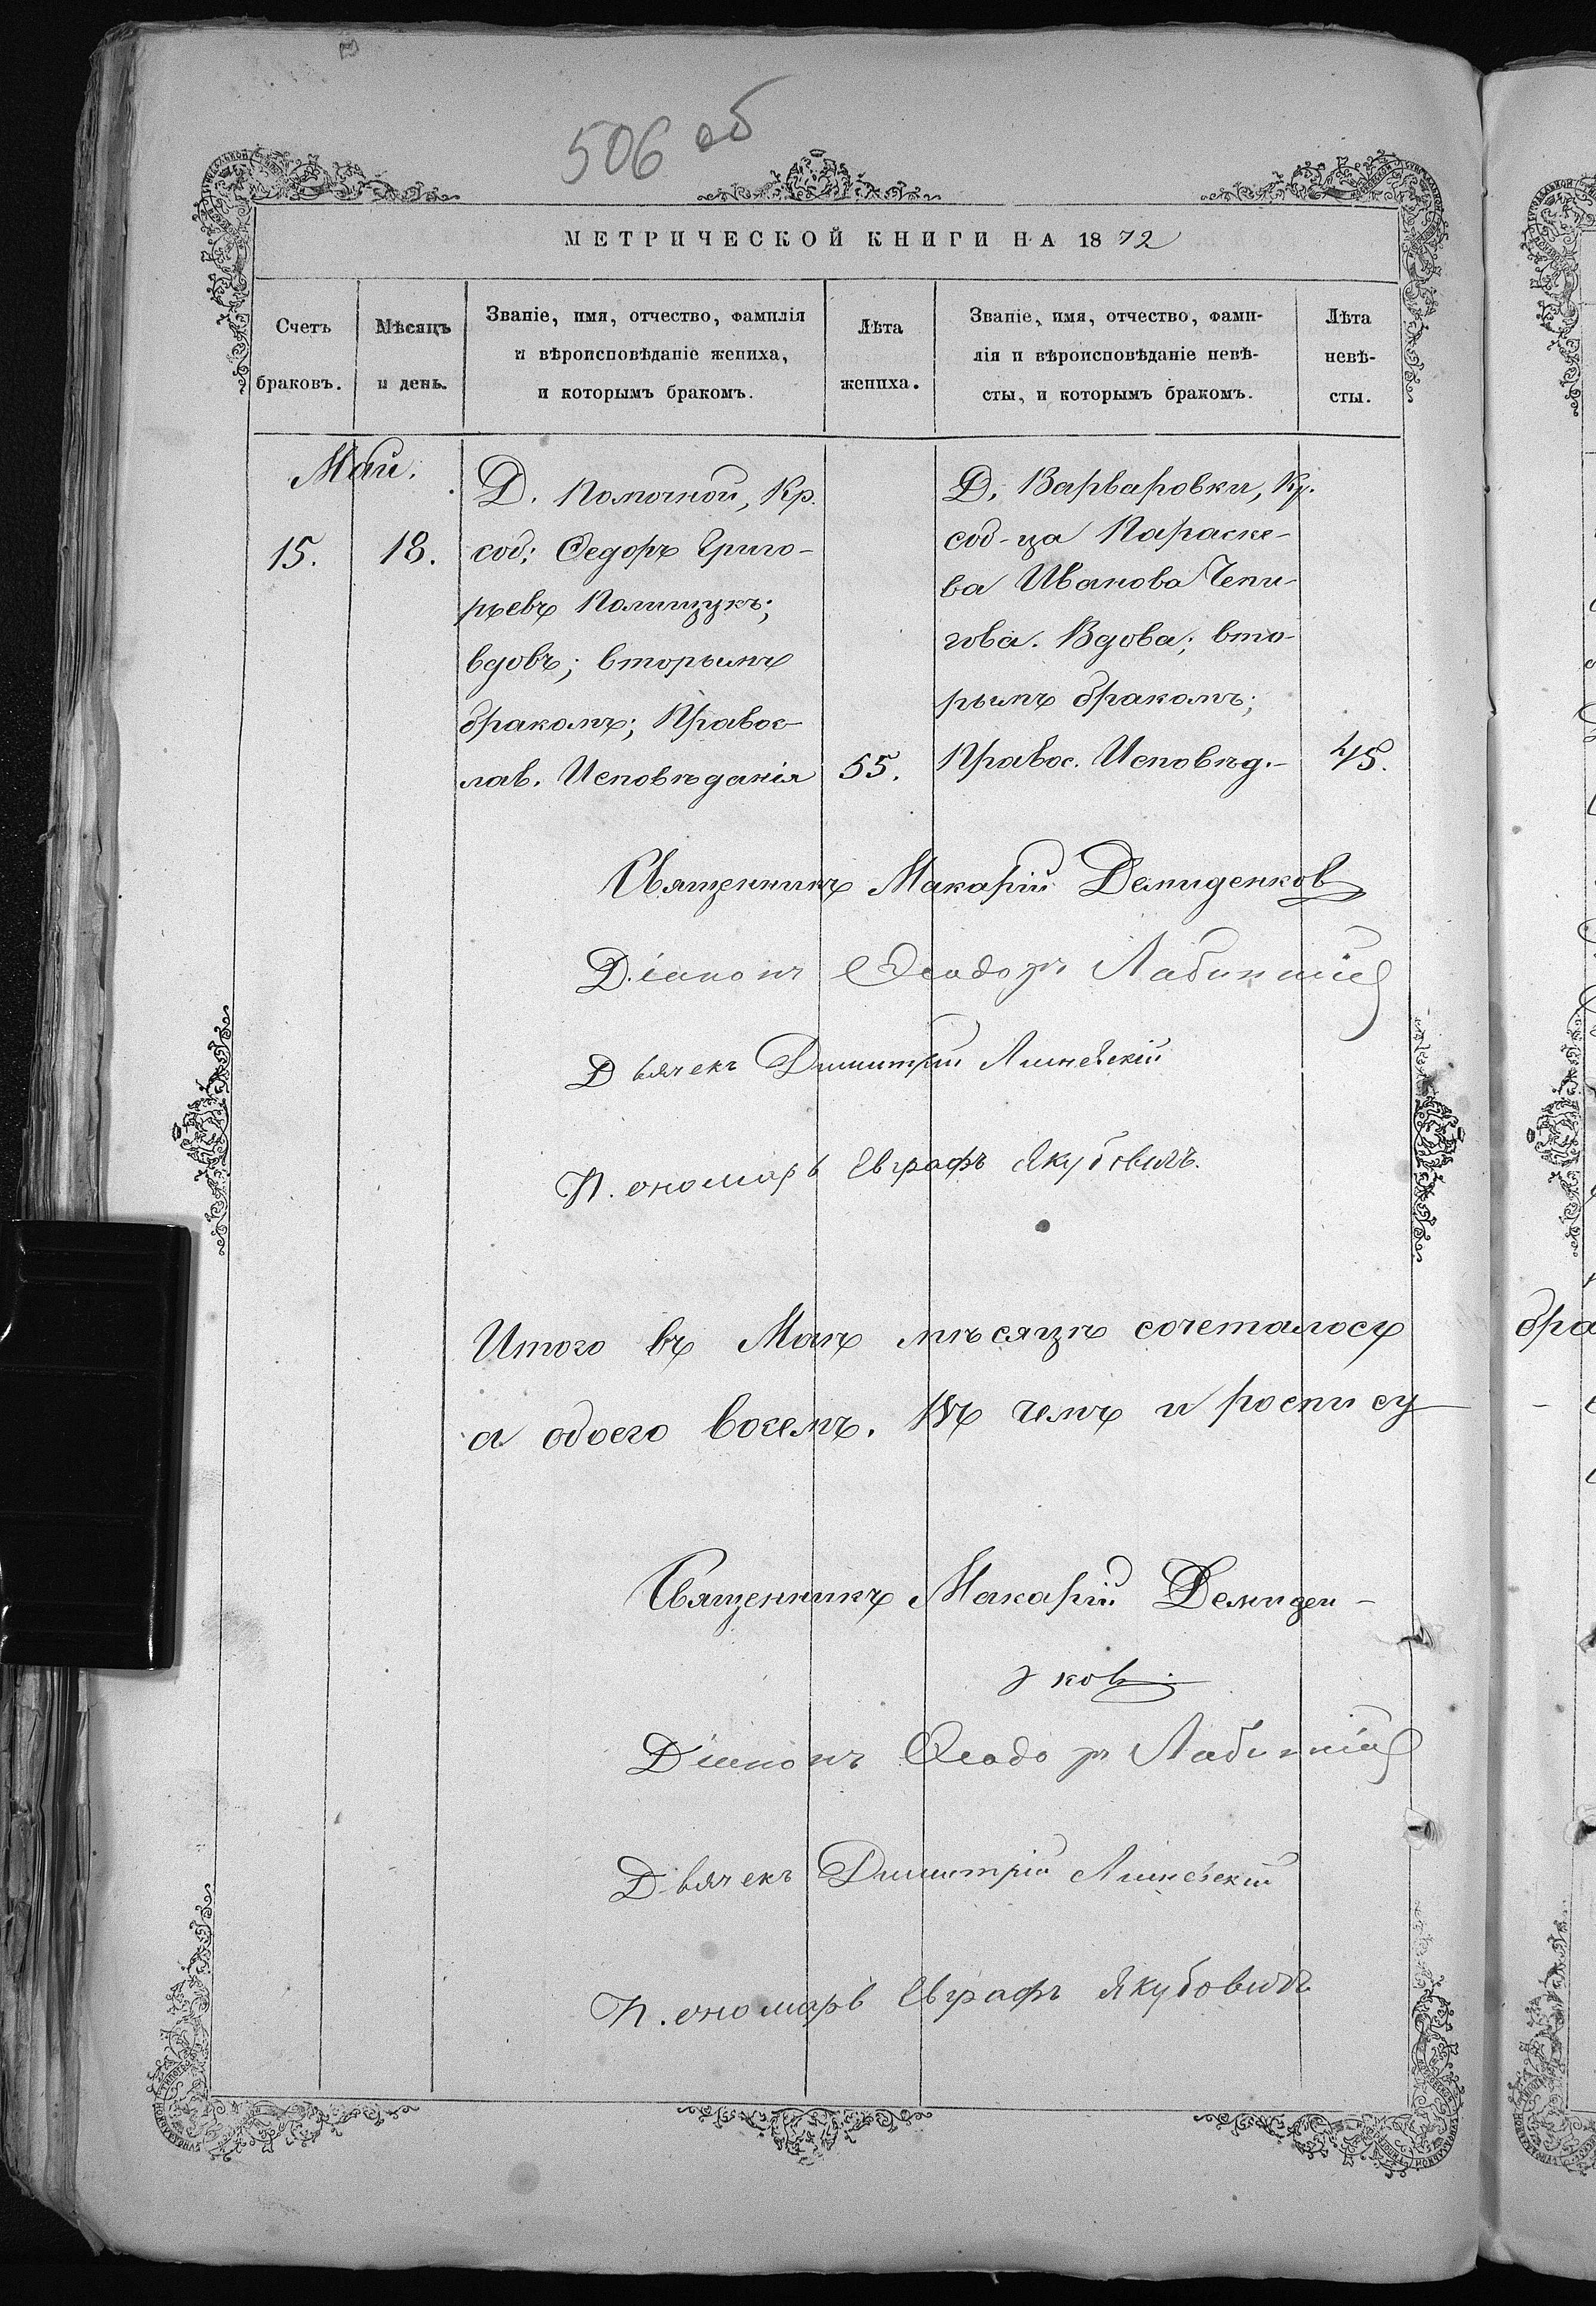 506 об
МЕТРИЧЕСКОЙ КНИГИ НА 1872
Счетъ браковъ.
Мѣсяцъ и день.
Званіе, имя, отчество, фамилія
и вѣроисповѣданіе жениха,
и которымъ бракомъ.
Лѣта жениха.
Званіе, имя, отчество, фами-
лія и вѣроисповѣданіе невѣ-
сты, и которымъ бракомъ.
Лѣта невѣ-
сты.
Май.
15.
18.
Д. Помочной, Кр.
соб: Ѳедоръ Григо-
рьевъ Полищукъ;
вдовъ; вторымъ
бракомъ; Правос-
лав. Исповѣданія
55.
Д. Варваровки, Кр.
соб-ца Параске-
ва Иванова Чепи-
гова. Вдова; вто-
рымъ бракомъ;
Правос. Исповѣд.-
45.
Священникъ Макарій Демиденков
Діаконъ Ѳеодоръ
Дьячекъ Димитрій
Пономарь Евграфъ Якубовичъ.
Итого въ Маѣ мѣсяцѣ сочеталось
а обоего восемъ. Въ чемъ и роспису
Священникъ Макарій Демиден-
ков.
Діаконъ Ѳеодоръ
Дьячекъ Димитрій
Пономарь Евграфъ Якубовичъ
бра